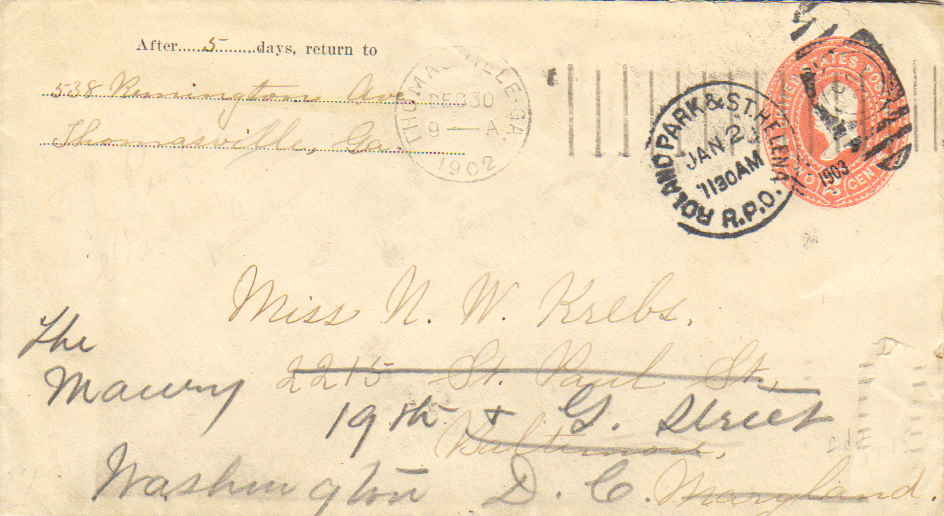 After.....5........days, return to
538 Remington Ave
Thomasville, Ga.
THOMASVILLE, GA.
DEC 30
9 — A
1902
ROLAND PARK & ST. HELENA
JAN 2
1130AM
R.P.O.
1903
UNITED STATES POSTAGE
TWO CENTS
Miss N. W. Krebs.
2215 St. Paul St.,
The
Maury
19th & G. Street
Baltimore,
Washington D. C.
Maryland.